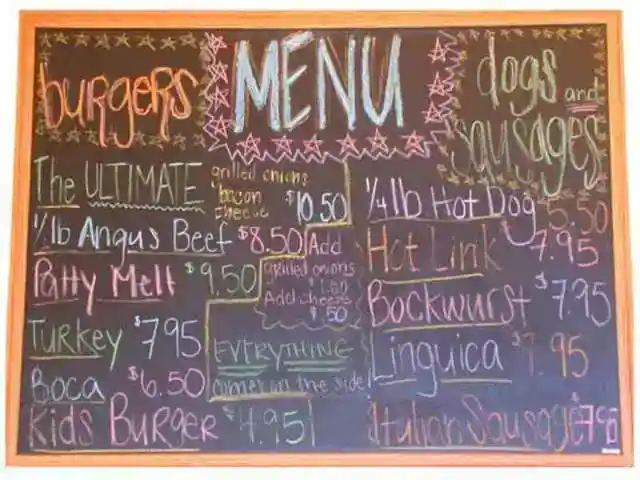 MENU
burgers
The ULTIMATE grilled onions bacon cheese $10.50
½ lb Angus Beef $8.50
Patty Melt $9.50
Turkey $7.95
Boca $6.50
Kids Burger $4.95
Add
grilled onions
Add cheese
$.50
EVERYTHING
comes on the side
dogs and
sausages
¼ lb Hot Dog 5.50
Hot Link 7.95
Bockwurst $7.95
Linguica $7.95
Italian Sausage